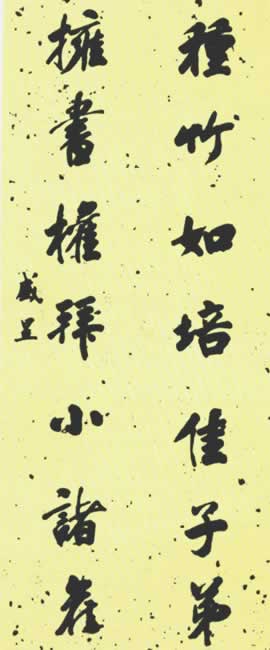 種竹如培佳子弟
擁書權拜小諸侯
盛昱